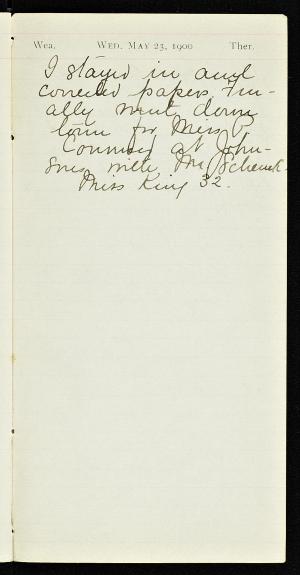 Wea. WED. MAY 23, 1900 Ther.
I stayed in and
corrected papers. Fin-
ally went down
town for Miss
Conway at John-
sons with Mr Schenck.
Miss King 32.